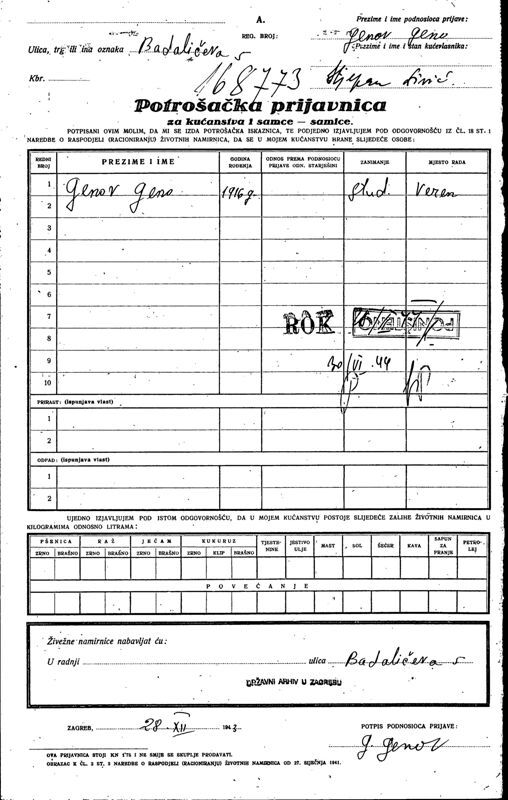 A.
Prezime i ime podnosioca prijave:
REG. BROJ:
Genov Geno
Ulica, trg ili ina oznaka Badalićeva 5
Prezime i ime i stan kućevlasnika:
Kbr.
168773
Stjepan
Potrošačka prijavnica
za kućanstva i samce — samice.
POTPISANI OVIM MOLIM, DA MI SE IZDA POTROŠAČKA ISKAZNICA, TE PODJEDNO IZJAVLJUJEM POD ODGOVORNOŠĆU IZ ČL. 18 ST. 1
NAREDBE O RASPODJELI (RACIONIRANJU) ŽIVOTNIH NAMIRNICA, DA SE U MOJEM KUĆANSTVU HRANE SLIJEDEĆE OSOBE:
REDNI BROJ PREZIME I IME GODINA ROĐENJA ODNOS PREMA PODNOSIOCU PRIJAVE ODN. STARJEŠINI ZANIMANJE MJESTO RADA
1 Genov Geno 1916 g. stud.
2
3
4
5
6
7 ROK PONIŠTENO
8
9 30/VI. 44
10
PRIRAST: (ispunjava vlast)
1
2
OTPAD: (ispunjava vlast)
1
2
UJEDNO IZJAVLJUJEM POD ISTOM ODGOVORNOŠĆU, DA U MOJEM KUĆANSTVU POSTOJE SLIJEDEĆE ZALIHE ŽIVOTNIH NAMIRNICA U
KILOGRAMIMA ODNOSNO LITRAMA:
PŠENICA RAŽ JEČAM KUKURUZ TJESTENINE JESTIVO ULJE MAST SOL ŠEĆER KAVA SAPUN ZA PRANJE PETROLEJ
ZRNO BRAŠNO ZRNO BRAŠNO ZRNO BRAŠNO ZRNO KLIP BRAŠNO
POVEĆANJE
Živežne namirnice nabavljat ću:
U radnji ulica Badalićeva 5
DRŽAVNI ARHIV U ZAGREBU
ZAGREB, 28. XII 1943.
POTPIS PODNOSIOCA PRIJAVE:
G. Genov
OVA PRIJAVNICA STOJI KN 1'75 I NE SMIJE SE SKUPLJE PRODAVATI.
OBRAZAC K ČL. 2 ST. 3 NAREDBE O RASPODJELI (RACIONIRANJU) ŽIVOTNIH NAMIRNICA OD 27. SIJEČNJA 1941.